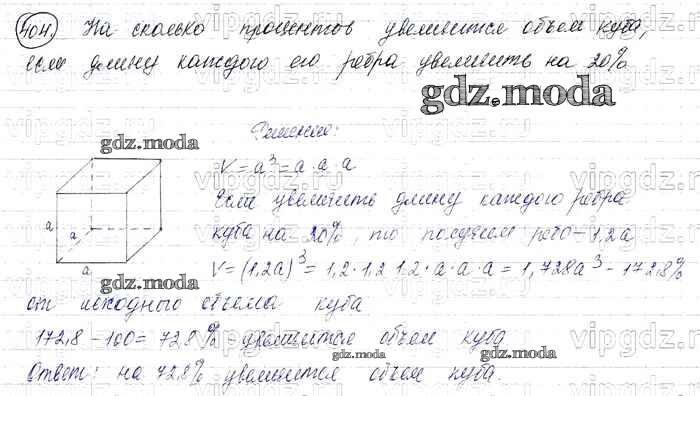 404. На сколько процентов увеличится объем куба,
если длину каждого его ребра увеличить на 20%
gdz.moda
Решение:
gdz.moda
V = a³ = a · a · a
Если увеличить длину каждого ребра
куба на 20%, то получим ребро – 1,2a
V = (1,2a)³ = 1,2 · 1,2 · 1,2 · a · a · a = 1,728a³ – 172,8%
a
a
a
от исходного объема куба
172,8 – 100 = 72,8% увеличится объем куба
gdz.moda
gdz.moda
Ответ: на 72,8% увеличится объем куба.
vipgdz.ru